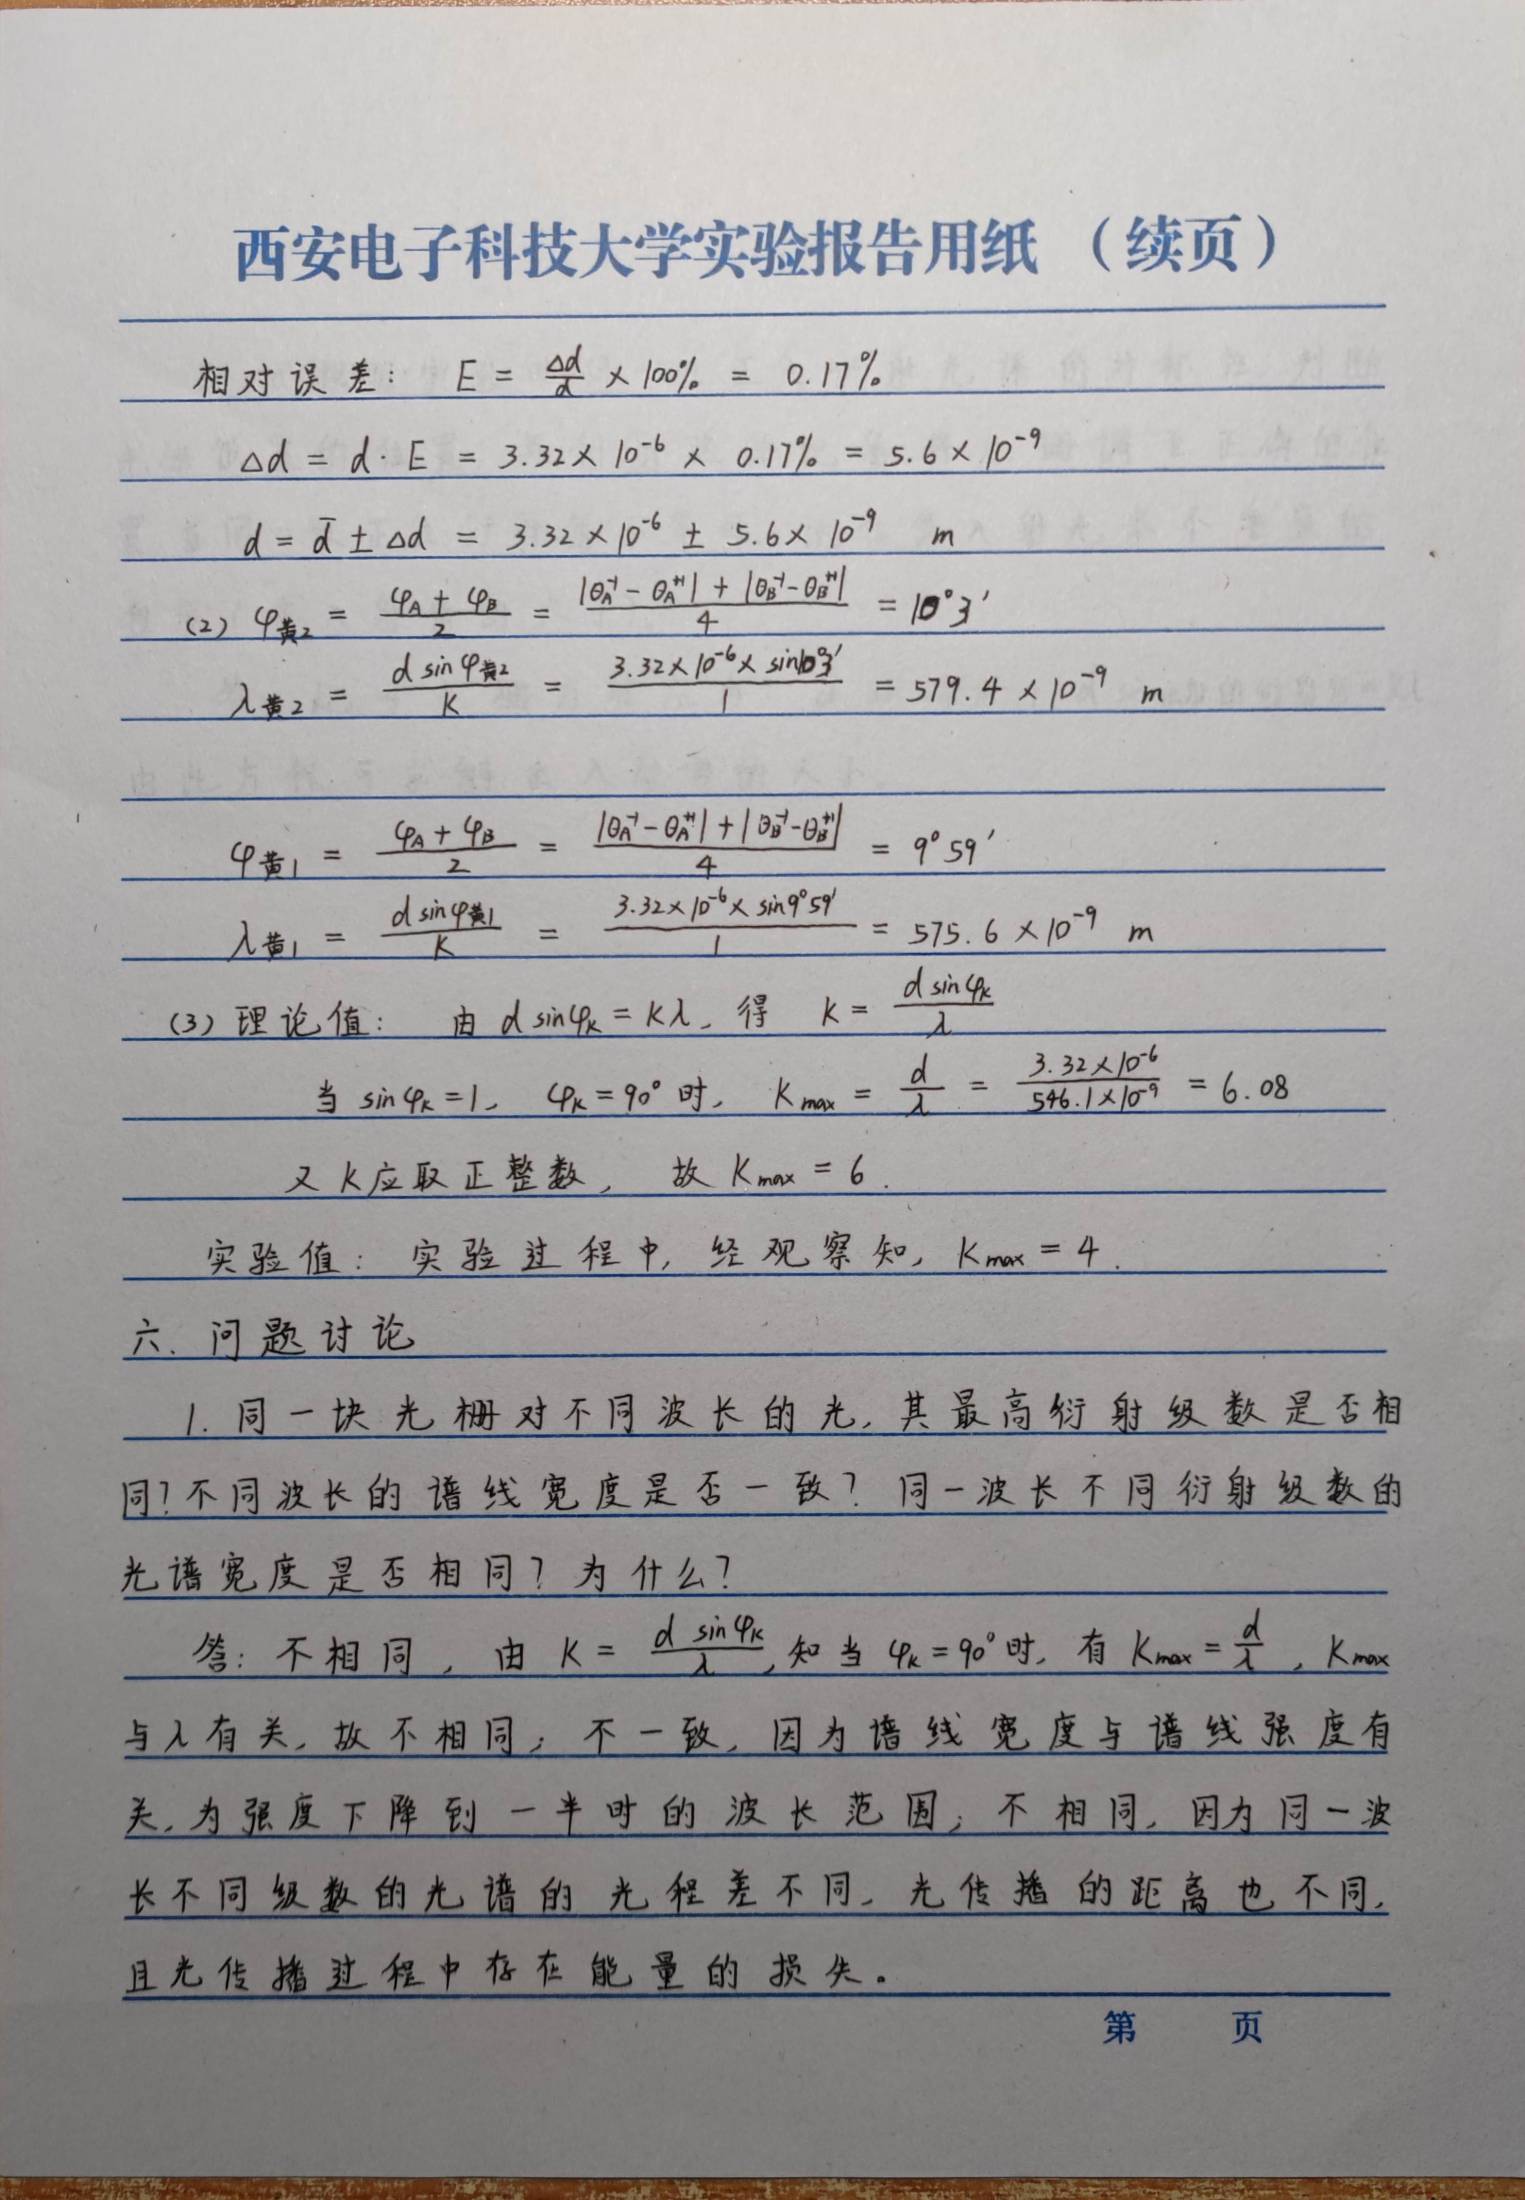 西安电子科技大学实验报告用纸 （续页）
相对误差： E = Δd/d × 100% = 0.17%
Δd = d · E = 3.32 × 10⁻⁶ × 0.17% = 5.6 × 10⁻⁹
d = d̄ ± Δd = 3.32 × 10⁻⁶ ± 5.6 × 10⁻⁹ m
(2) φ黄2 = (φA + φB)/2 = (|θA⁻¹ - θA⁺¹| + |θB⁻¹ - θB⁺¹|)/4 = 10°3′
λ黄2 = d sinφ黄2/K = 3.32×10⁻⁶ × sin10°3′/1 = 579.4 × 10⁻⁹ m
φ黄1 = (φA + φB)/2 = (|θA⁻¹ - θA⁺¹| + |θB⁻¹ - θB⁺¹|)/4 = 9°59′
λ黄1 = d sinφ黄1/K = 3.32×10⁻⁶ × sin9°59′/1 = 575.6 × 10⁻⁹ m
(3) 理论值： 由 d sinφK = Kλ, 得 K = d sinφK/λ
当 sinφK = 1, φK = 90° 时, Kmax = d/λ = 3.32×10⁻⁶/546.1×10⁻⁹ = 6.08
又 K应取正整数, 故 Kmax = 6.
实验值： 实验过程中, 经观察知, Kmax = 4.
六. 问题讨论
1. 同一块光栅对不同波长的光, 其最高衍射级数是否相
同? 不同波长的谱线宽度是否一致? 同一波长不同衍射级数的
光谱宽度是否相同? 为什么?
答: 不相同, 由 K = d sinφK/λ, 知当 φK = 90° 时, 有 Kmax = d/λ, Kmax
与λ有关, 故不相同; 不一致, 因为谱线宽度与谱线强度有
关, 为强度下降到一半时的波长范围; 不相同, 因为同一波
长不同级数的光谱的光程差不同, 光传播的距离也不同,
且光传播过程中存在能量的损失。
第 页